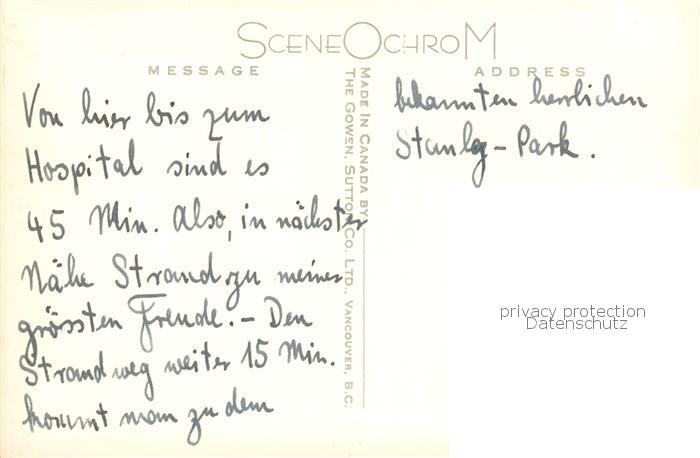 SCENEOCHROM
MESSAGE
ADDRESS
Von hier bis zum
Hospital sind es
45 Min. Also, in nächster
Nähe Strand zu meiner
grössten Freude. – Den
Strandweg weiter 15 Min.
kommt man zu dem
MADE IN CANADA BY
THE GOWEN, SUTTON CO. LTD., VANCOUVER, B.C.
bekannten herrlichen
Stanley-Park.
privacy protection
Datenschutz